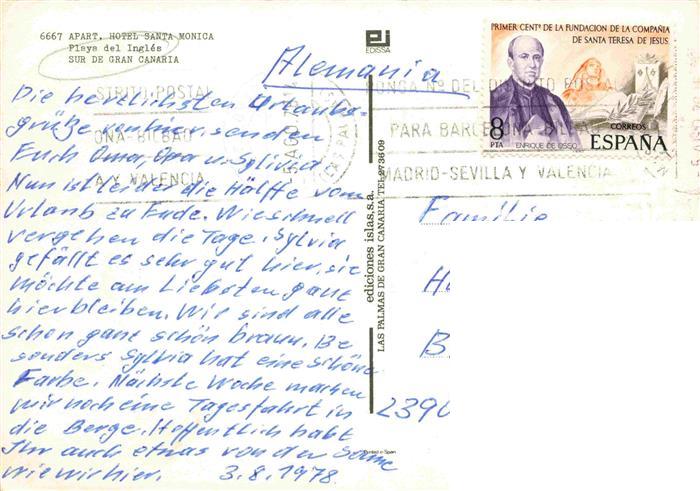 6667 APART. HOTEL SANTA MONICA
Playa del Inglés
SUR DE GRAN CANARIA
EDISSA
Alemania
Die herzlichsten Urlaubs-
grüße von hier, senden
Euch Oma, Opa u. Sylvia.
Nun ist leider die Hälfte vom
Urlaub zu Ende. Wie schnell
vergehen die Tage. Sylvia
gefällt es sehr gut hier, sie
möchte am Liebsten ganz
hierbleiben. Wir sind alle
schon ganz schön braun. Be
sonders Sylvia hat eine schöne
Farbe. Nächste Woche machen
wir noch eine Tagesfahrt in
die Berge. Hoffentlich habt
Ihr auch etwas von der Sonne
wie wir hier. 3.8.1978
ediciones islas,s.a.
LAS PALMAS DE GRAN CANARIA TEL 273609
Printed in Spain
PRIMER CENTº DE LA FUNDACION DE LA COMPAÑIA
DE SANTA TERESA DE JESUS
8
PTA
ENRIQUE DE OSSO
CORREOS
ESPAÑA
STRITO POSTAL
ONA-BILBAO
A Y VALENCIA
PONGA Nº DEL DISTRITO POSTAL
PARA BARCELONA-BILBAO
MADRID-SEVILLA Y VALENCIA
Familie
H
B
2390